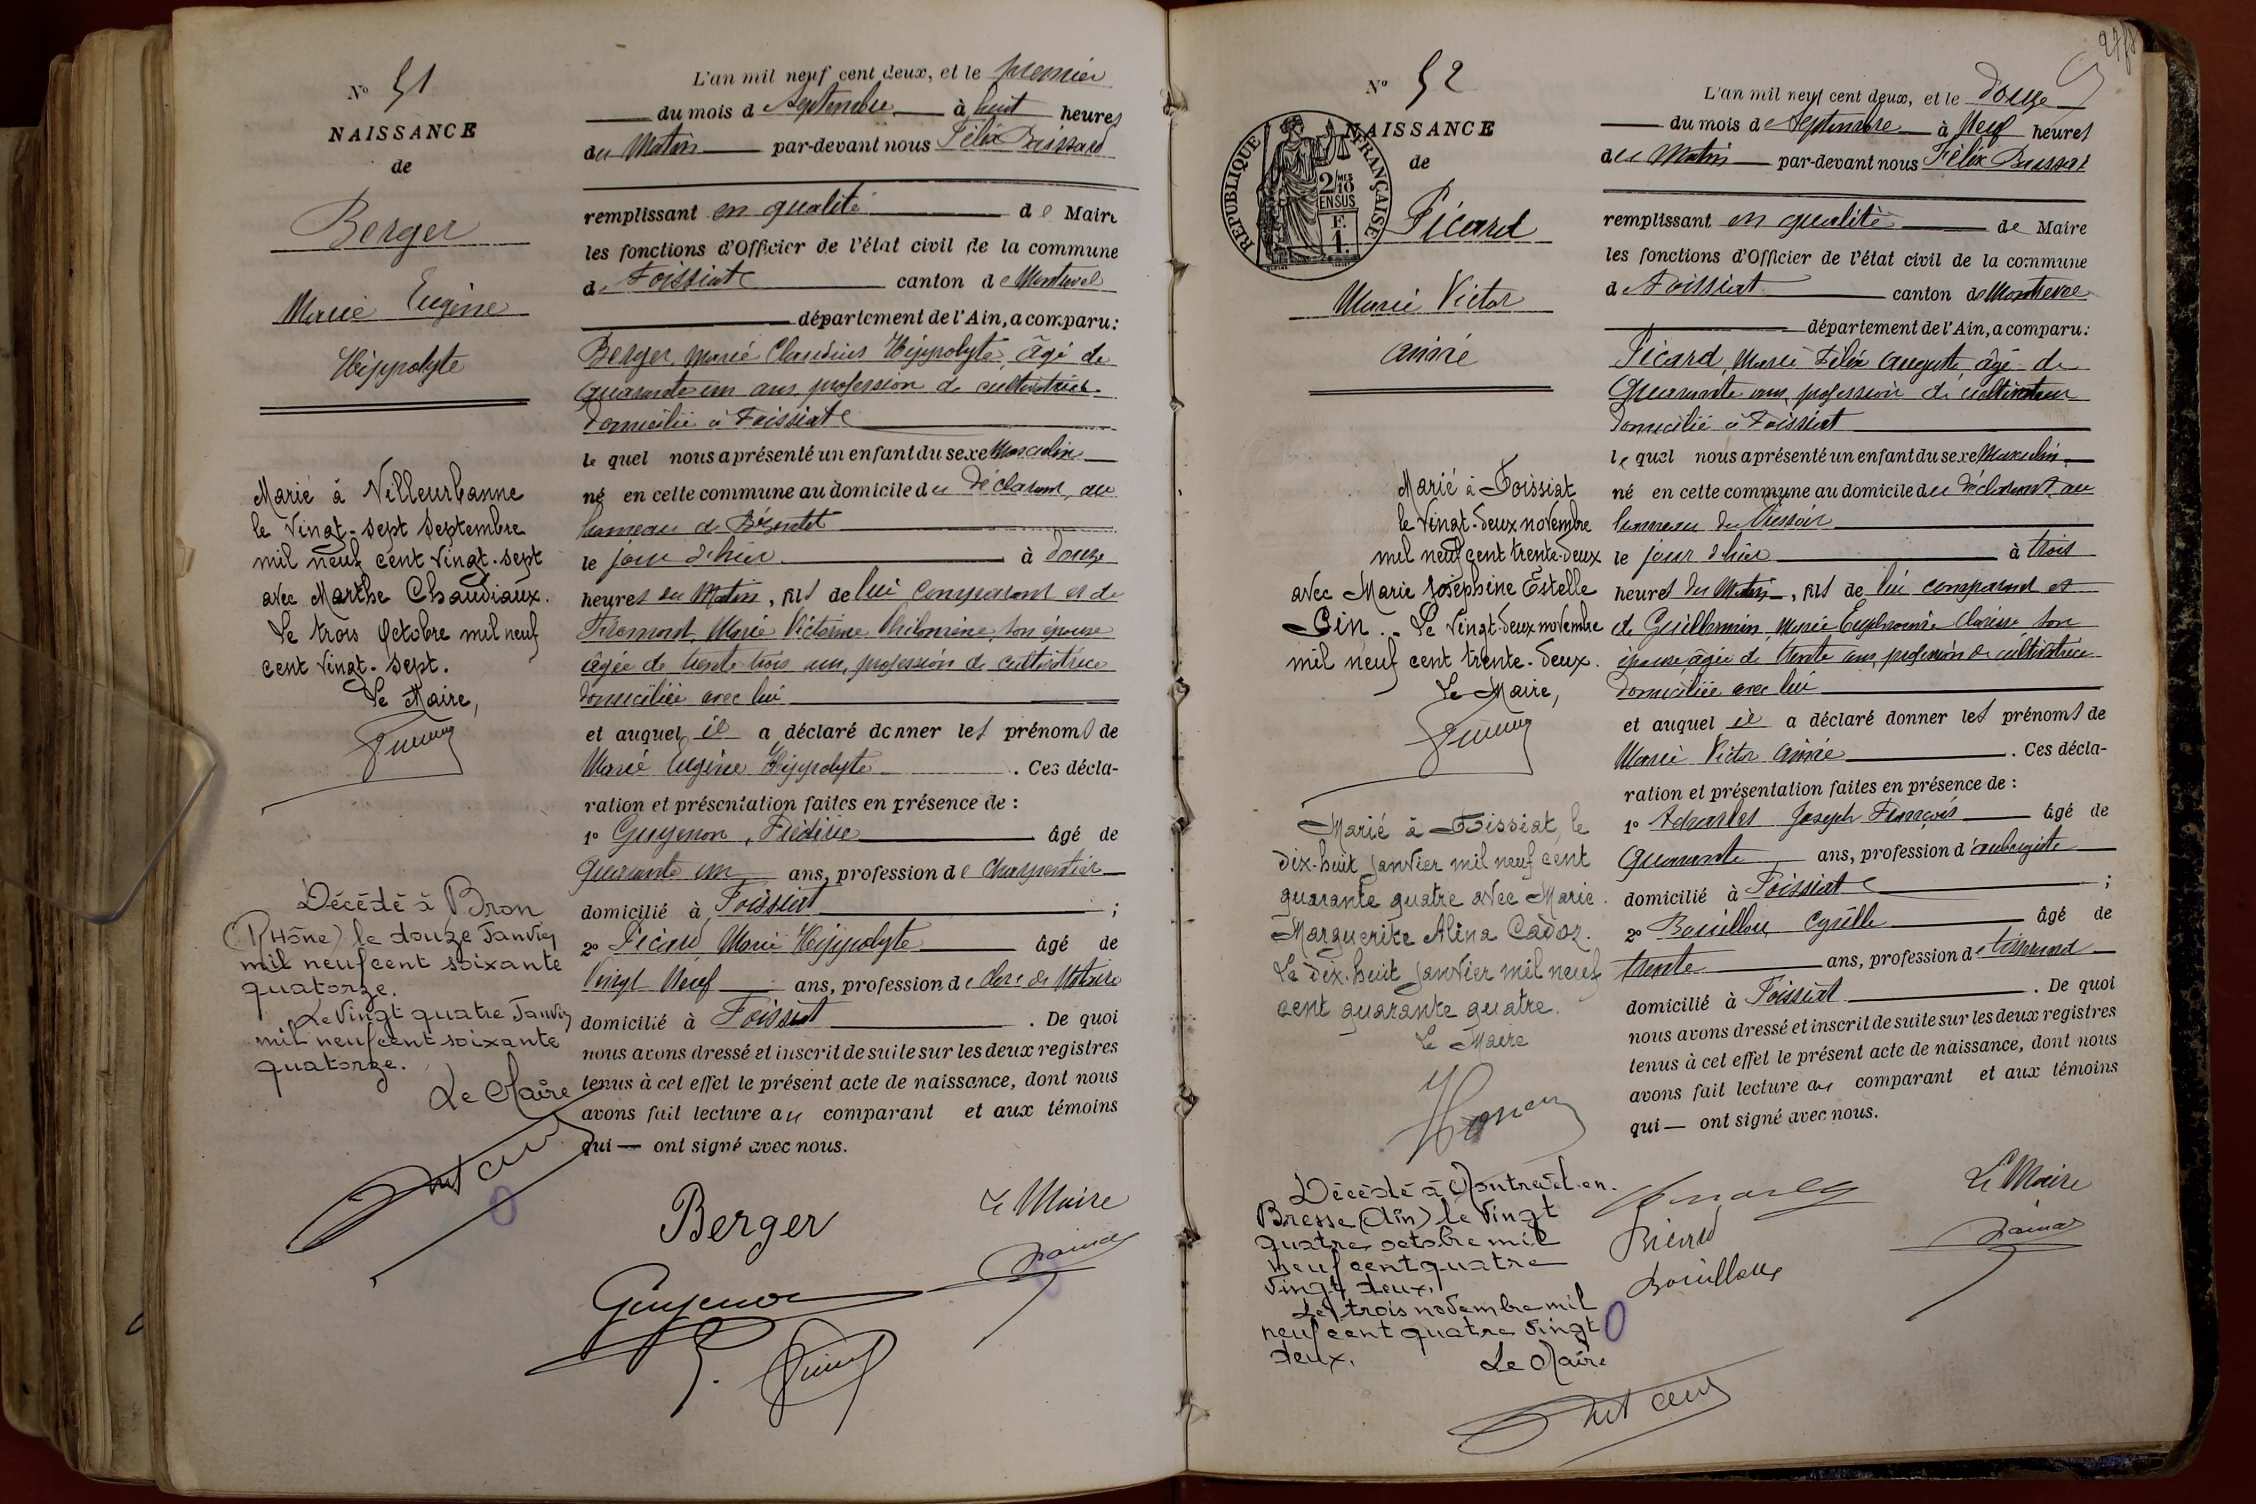 N° 51
NAISSANCE
de
Berger
Marie Eugène
Hippolyte
Marié à Villeurbanne
le vingt-sept septembre
mil neuf cent vingt-sept
avec Marthe Chaudiaux.
Le trois Octobre mil neuf
cent vingt-sept.
Le Maire,
Décédé à Bron
(Rhône) le douze Janvier
mil neuf cent soixante
quatorze.
Le vingt quatre Janvier
mil neuf cent soixante
quatorze.
Le Maire
L'an mil neuf cent deux, et le premier
du mois de Septembre à huit heures
du Matin par-devant nous Félix
remplissant en qualité de Maire
les fonctions d'Officier de l'état civil de la commune
de Foissiat canton de Montrevel
département de l'Ain, a comparu:
Berger, Marie Claudius Hippolyte, âgé de
quarante un ans, profession de
domicilié à Foissiat
le quel nous a présenté un enfant du sexe Masculin
né en cette commune au domicile du déclarant, au
hameau de
le jour d'hier à douze
heures du Matin, fils de lui comparant et de
Marie Victorine Philomène, son épouse
âgée de trente trois ans, profession de cultivatrice
domiciliée avec lui
et auquel il a déclaré donner les prénoms de
Marie Eugène Hippolyte. Ces décla-
ration et présentation faites en présence de :
1° Guyenon, Frédéric âgé de
quarante un ans, profession de charpentier
domicilié à Foissiat ;
2° Picard Marie Hippolyte âgé de
vingt neuf ans, profession de clerc de Notaire
domicilié à Foissiat. De quoi
nous avons dressé et inscrit de suite sur les deux registres
tenus à cet effet le présent acte de naissance, dont nous
avons fait lecture au comparant et aux témoins
qui — ont signé avec nous.
Le Maire
Berger
Guyenon
N° 52
NAISSANCE
de
REPUBLIQUE FRANÇAISE
2/10
EN SUS
Picard
Marie Victor
Aimé
Marié à Foissiat
le vingt-deux novembre
mil neuf cent trente-deux
avec Marie Joséphine Estelle
Pin. Le vingt-deux novembre
mil neuf cent trente-deux.
Le Maire,
Marié à Foissiat, le
dix-huit janvier mil neuf cent
quarante quatre avec Marie
Marguerite Alina Cadoz.
Le dix-huit janvier mil neuf
cent quarante quatre.
Le Maire
Décédé à Montrevel-en-
Bresse (Ain) le vingt
quatre octobre mil
neuf cent quatre
vingt deux.
Le trois novembre mil
neuf cent quatre vingt
deux.
Le Maire
L'an mil neuf cent deux, et le douze
du mois de Septembre à Neuf heures
du Matin par-devant nous Félix
remplissant en qualité de Maire
les fonctions d'Officier de l'état civil de la commune
de Foissiat canton de Montrevel
département de l'Ain, a comparu:
Picard, Marie Félix Auguste, âgé de
quarante ans, profession de cultivateur
domicilié à Foissiat
le quel nous a présenté un enfant du sexe Masculin
né en cette commune au domicile du déclarant, au
hameau du
le jour d'hier à trois
heures du Matin, fils de lui comparant et
de Guillermin, Marie Euphrosine Clarisse son
épouse âgée de trente ans, profession de cultivatrice
domiciliée avec lui
et auquel il a déclaré donner les prénoms de
Marie Victor Aimé. Ces décla-
ration et présentation faites en présence de :
1° Joseph François âgé de
quarante ans, profession d'aubergiste
domicilié à Foissiat ;
2° Bouilloux Cyrille âgé de
trente ans, profession de tisserand
domicilié à Foissiat. De quoi
nous avons dressé et inscrit de suite sur les deux registres
tenus à cet effet le présent acte de naissance, dont nous
avons fait lecture au comparant et aux témoins
qui — ont signé avec nous.
Le Maire
Picard
Bouilloux